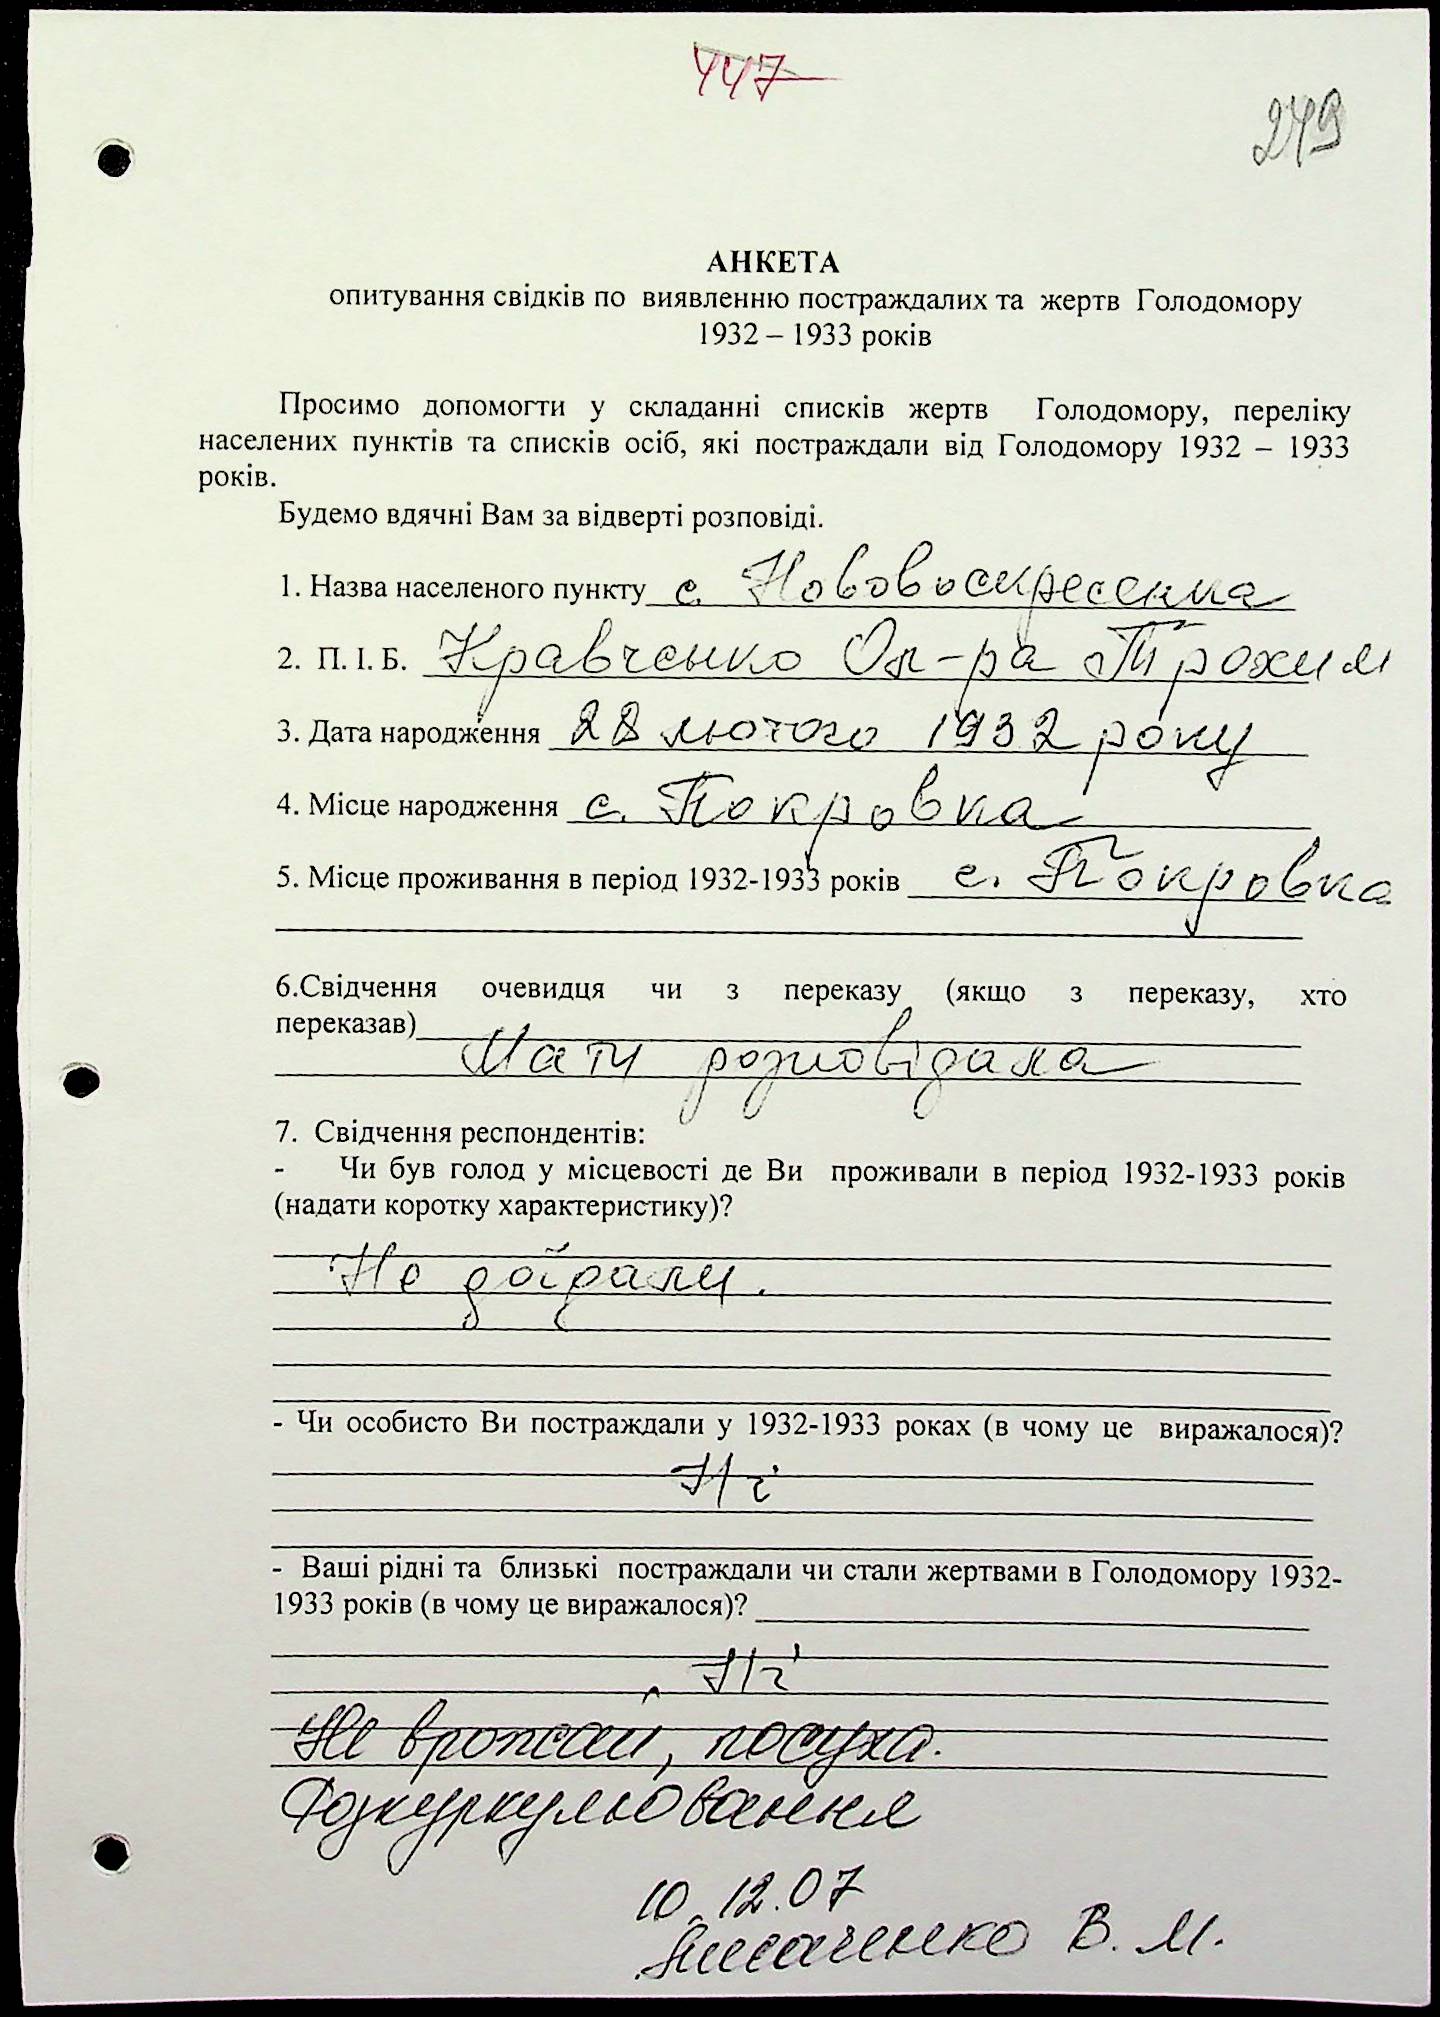 447
249
АНКЕТА
опитування свідків по виявленню постраждалих та жертв Голодомору
1932 – 1933 років
Просимо допомогти у складанні списків жертв Голодомору, переліку
населених пунктів та списків осіб, які постраждали від Голодомору 1932 – 1933
років.
Будемо вдячні Вам за відверті розповіді.
1. Назва населеного пункту с. Нововоскресенка
2. П. І. Б. Кравченко Ол-ра Трохим
3. Дата народження 28 лютого 1932 року
4. Місце народження с. Покровка
5. Місце проживання в період 1932-1933 років с. Покровка
6.Свідчення очевидця чи з переказу (якщо з переказу, хто
переказав)
Мати розповідала
7. Свідчення респондентів:
- Чи був голод у місцевості де Ви проживали в період 1932-1933 років
(надати коротку характеристику)?
Не доїдали.
- Чи особисто Ви постраждали у 1932-1933 роках (в чому це виражалося)?
Ні
- Ваші рідні та близькі постраждали чи стали жертвами в Голодомору 1932-
1933 років (в чому це виражалося)?
Ні
Не врожай, посуха.
Розкуркулювання
10.12.07
В. М.